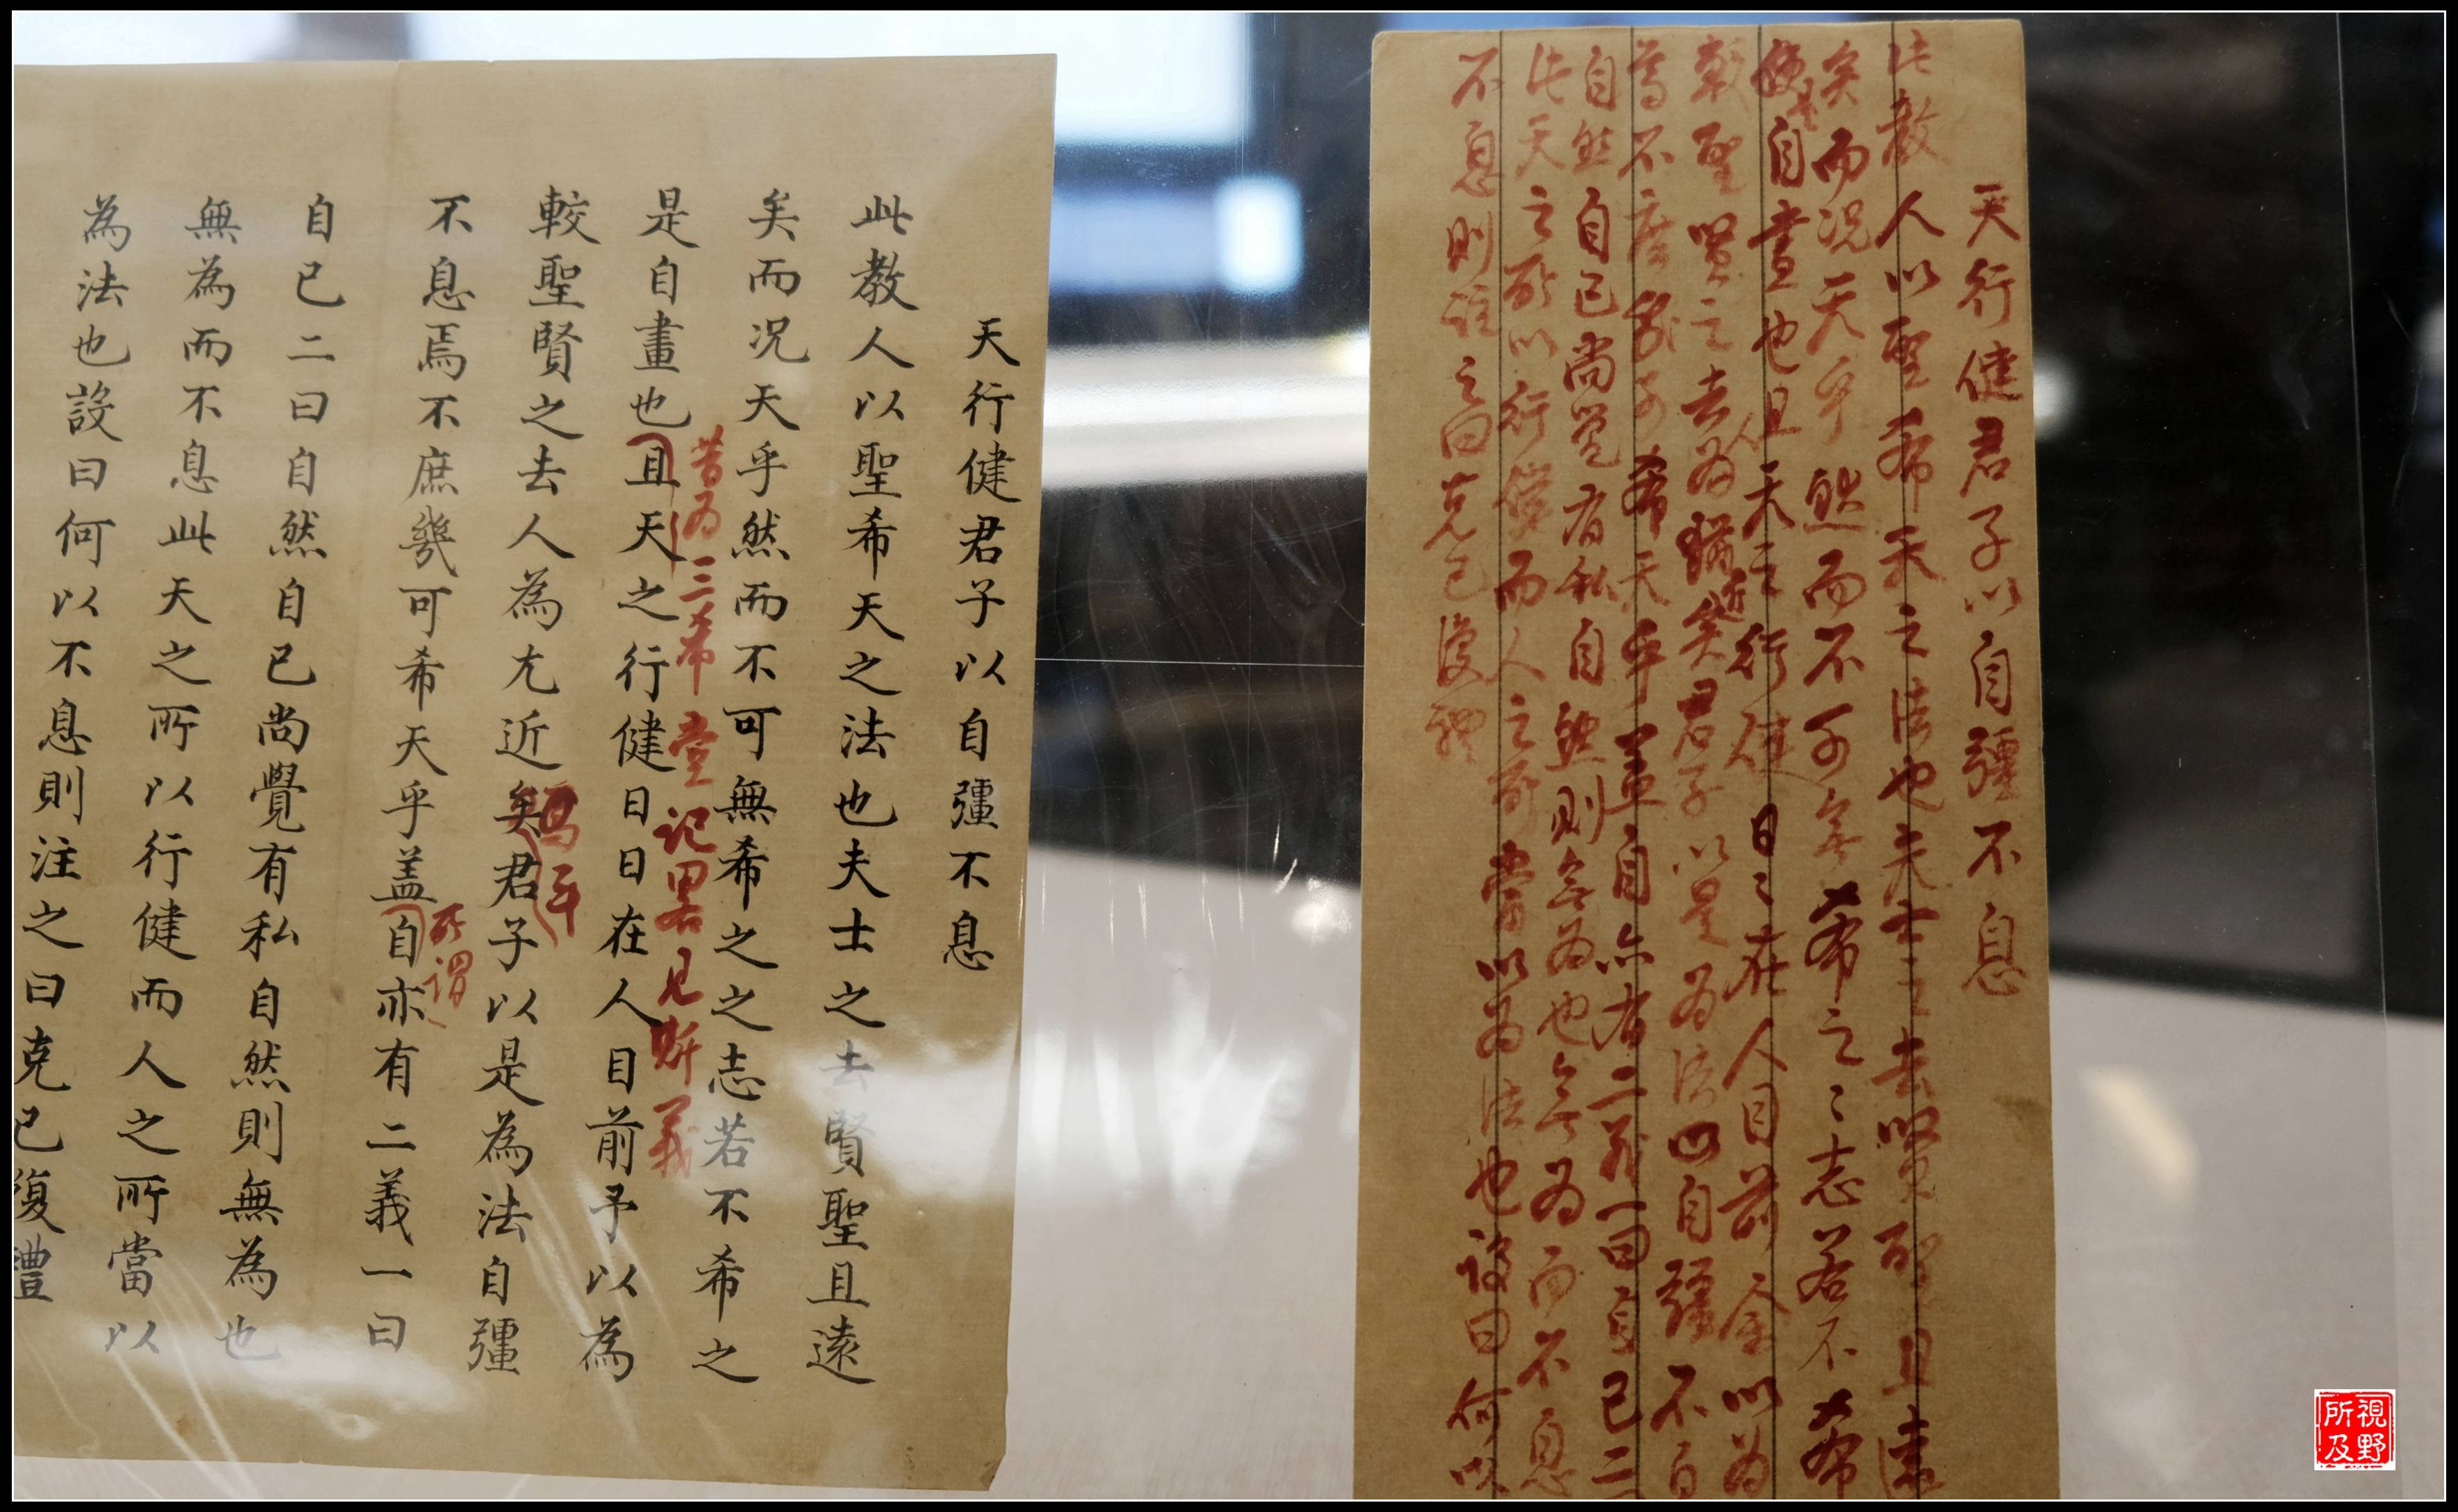 天行健君子以自彊不息
此教人以聖希天之法也夫士之去賢聖且遠
矣而況天乎然而不可無希之〻志若不希
是自畫也且天之行健日〻在人目前余以為
較聖賢之去為近矣君子以是為法自彊不
焉不庶幾可希天乎蓋自亦有二義一曰自己二
自然自己尚覺有私自然則無為也無為而不息
此天之所以行健而人之所當以為法也設曰何以
不息則註之曰克己復禮
天行健君子以自彊不息
此教人以聖希天之法也夫士之去賢聖且遠
矣而況天乎然而不可無希之之志若不希之
昔為三希堂記畧見斯義
是自畫也且天之行健日日在人目前予以為
較聖賢之去人為尤近矣君子以是為法自彊
焉耳
不息焉不庶幾可希天乎盖自亦有二義一曰
所謂
自己二曰自然自己尚覺有私自然則無為也
無為而不息此天之所以行健而人之所當以
為法也設曰何以不息則注之曰克己復禮
視野所及